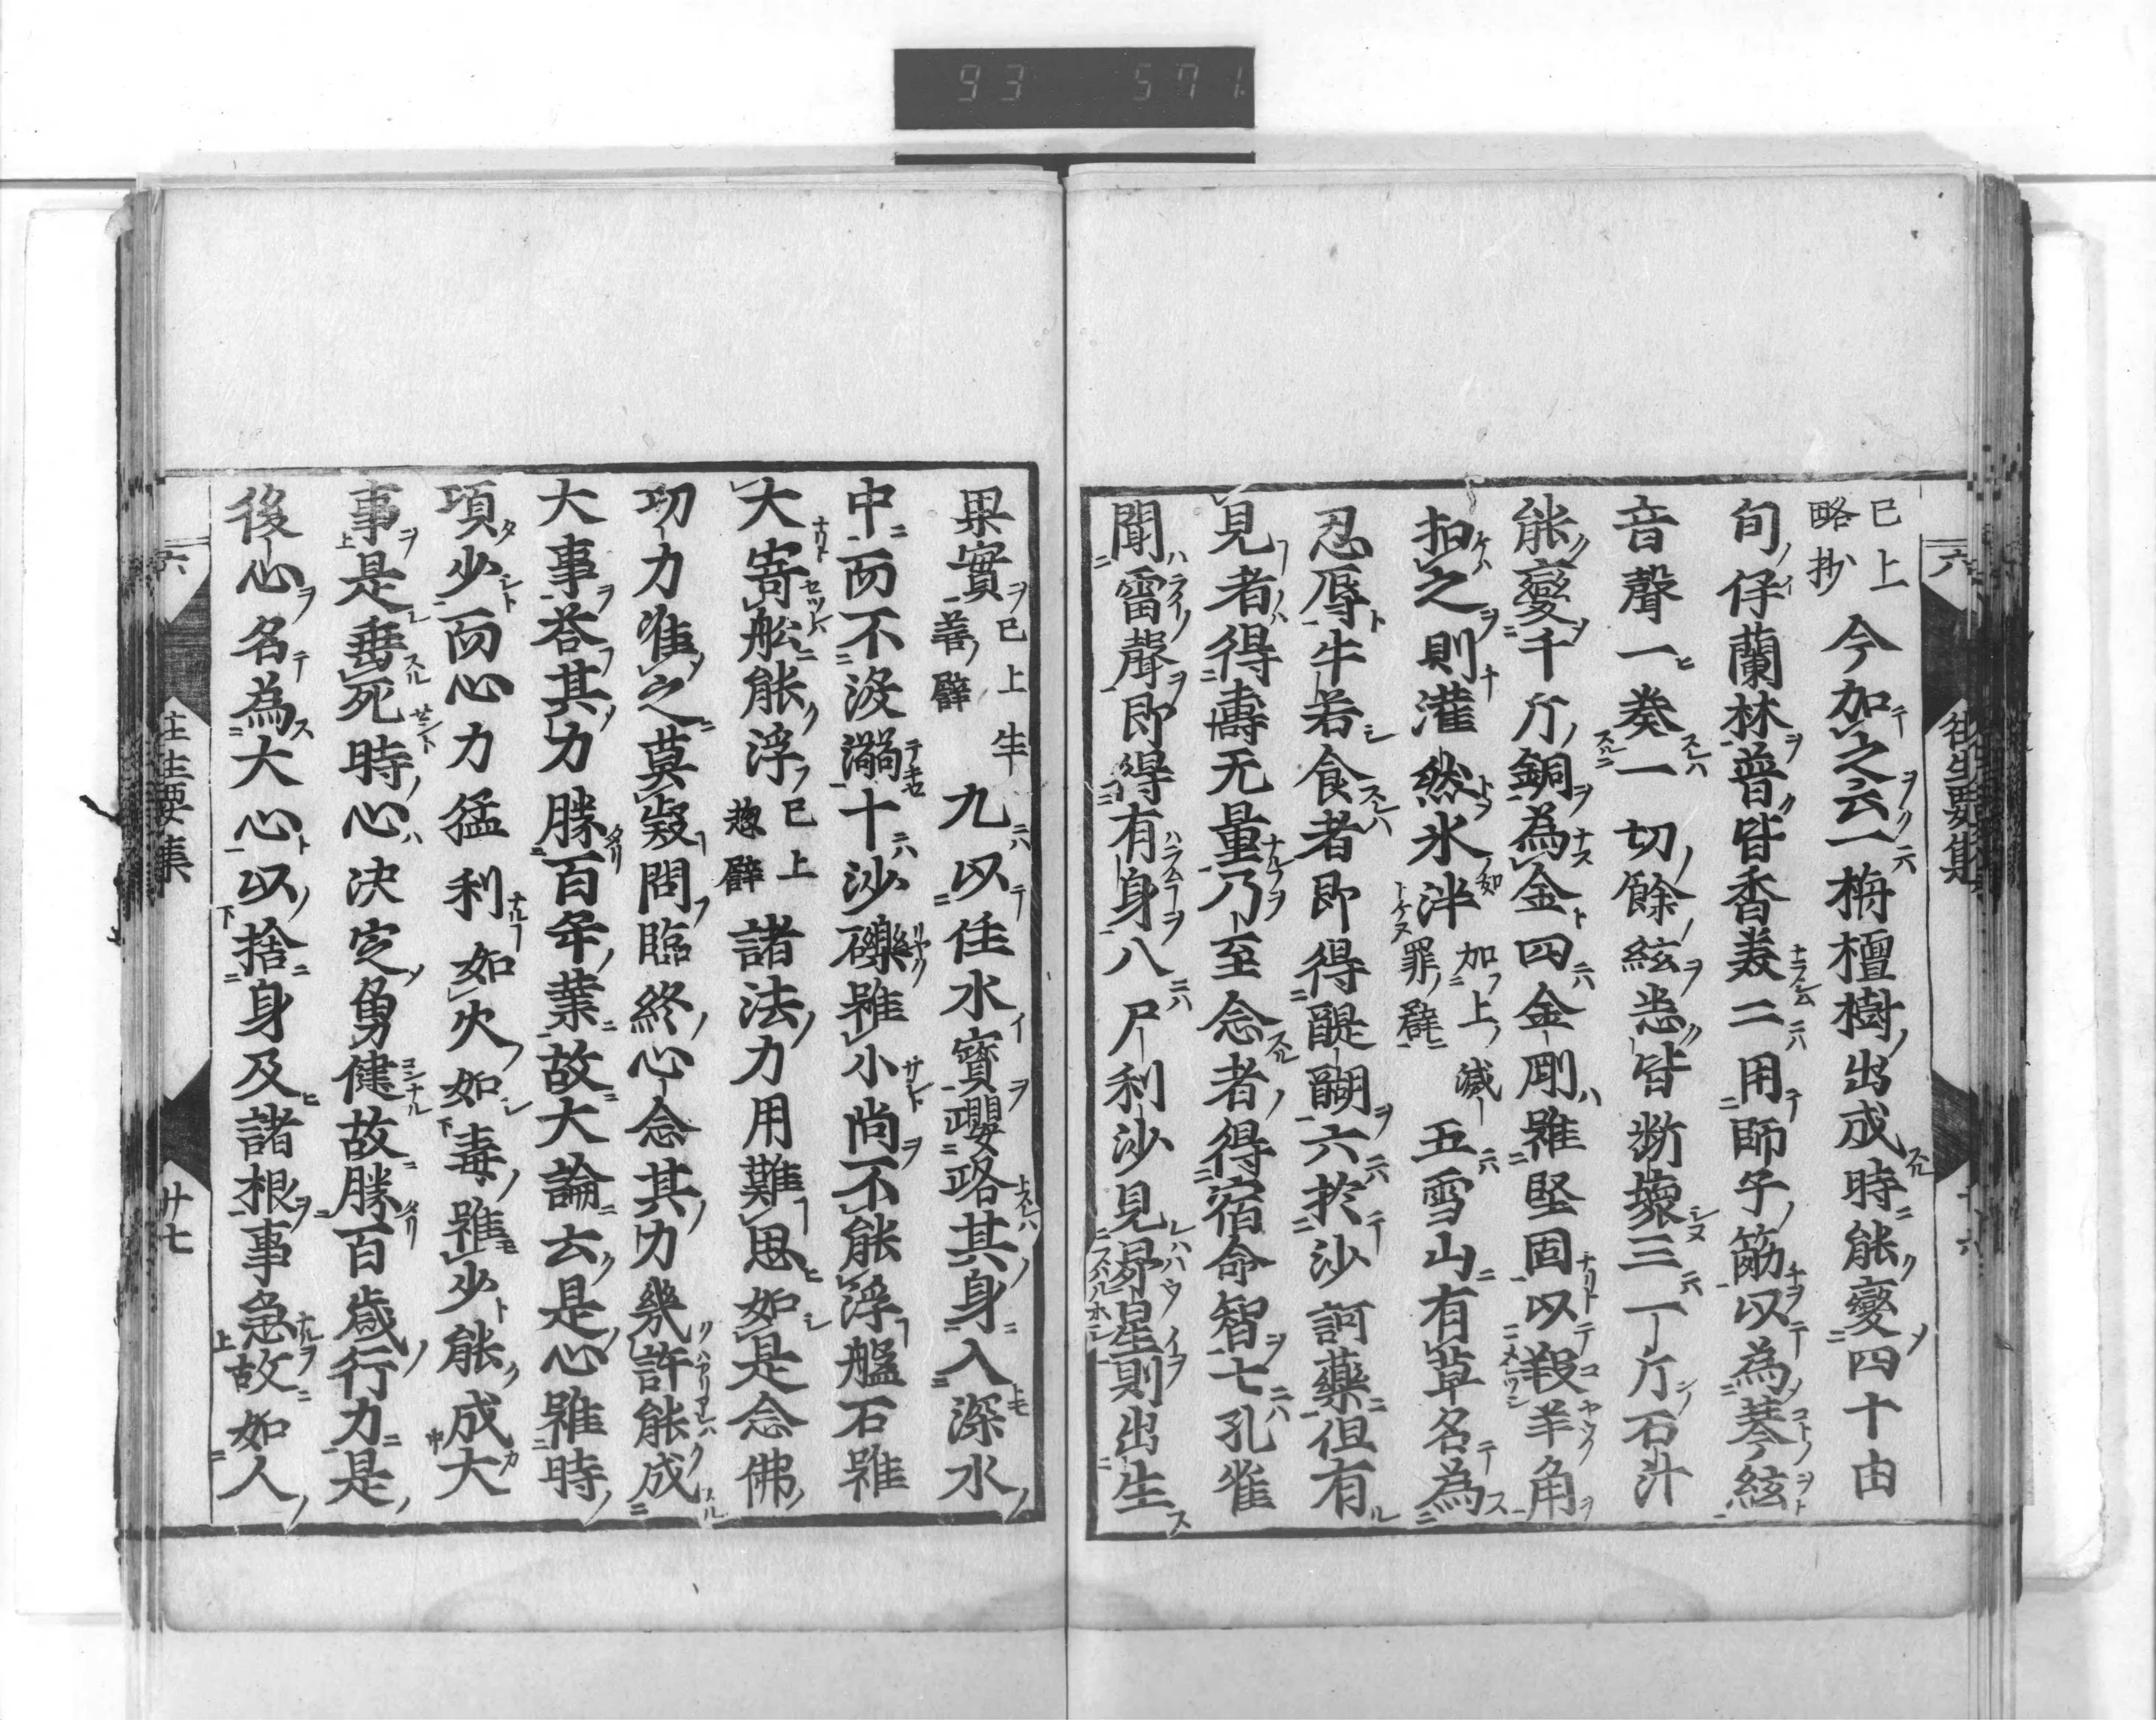 93 571
已上略抄今加之云一栴檀樹出成時能變四十由
旬伊蘭林普皆香美二用師子筋以為琴絃
音聲一奏一切餘絃悉皆断壞三一斤石汁
能變千斤銅為金四金剛雖堅固以羖羊角
扣之則灌然氷泮已上滅罪譬五雪山有草名為
忍辱牛若食者即得醍醐六於沙訶藥但有
見者得壽无量乃至念者得宿命智七孔雀
聞雷聲即得有身八尸利沙見昴星則出生
果實已上生善譬九以住水寳瓔珞其身入深水
中而不没溺十沙礫雖小尚不能浮盤石雖
大寄舩能浮已上惣譬諸法力用難思如是念佛
功力准之莫疑問臨終心念其力幾許能成
大事荅其力勝百年業故大論云是心雖時
頃少而心力猛利如火如毒雖少能成大
事是垂死時心决定勇健故勝百歳行力是
後心名為大心以捨身及諸根事急故如人
六 往生要集 廿七